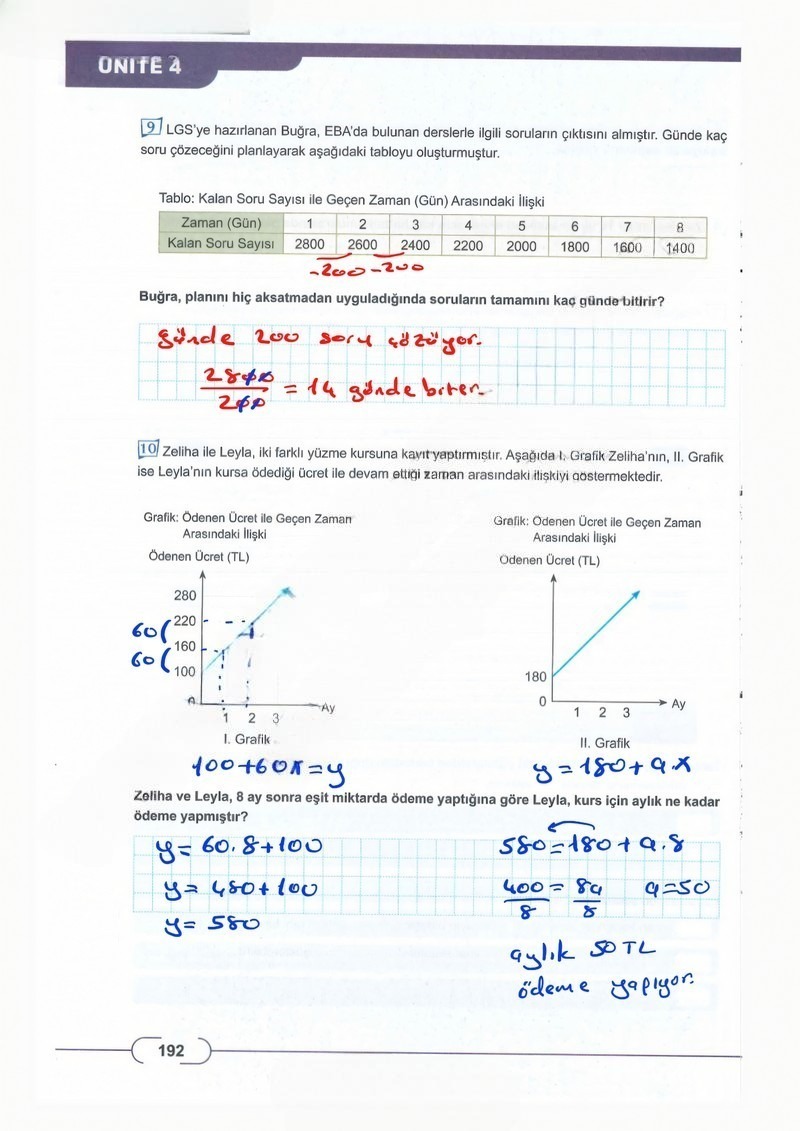 ÜNİTE 4
9 LGS'ye hazırlanan Buğra, EBA'da bulunan derslerle ilgili soruların çıktısını almıştır. Günde kaç
soru çözeceğini planlayarak aşağıdaki tabloyu oluşturmuştur.
Tablo: Kalan Soru Sayısı ile Geçen Zaman (Gün) Arasındaki İlişki
Zaman (Gün) 1 2 3 4 5 6 7 8
Kalan Soru Sayısı 2800 2600 2400 2200 2000 1800 1600 1400
-200 -200
Buğra, planını hiç aksatmadan uyguladığında soruların tamamını kaç günde bitirir?
günde 200 soru çözüyor.
2800/200 = 14 günde biter.
10 Zeliha ile Leyla, iki farklı yüzme kursuna kayıt yaptırmıştır. Aşağıda I. Grafik Zeliha'nın, II. Grafik
ise Leyla'nın kursa ödediği ücret ile devam ettiği zaman arasındaki ilişkiyi göstermektedir.
Grafik: Ödenen Ücret ile Geçen Zaman
Arasındaki İlişki
Ödenen Ücret (TL)
280
220
60(
160
60(
100
0
1 2 3
Ay
I. Grafik
100+60x=y
Grafik: Ödenen Ücret ile Geçen Zaman
Arasındaki İlişki
Ödenen Ücret (TL)
180
0
1 2 3
Ay
II. Grafik
y=180+a.x
Zeliha ve Leyla, 8 ay sonra eşit miktarda ödeme yaptığına göre Leyla, kurs için aylık ne kadar
ödeme yapmıştır?
y= 60.8+100
y= 480+100
y= 580
580=180+a.8
400/8 = 8a/8 a=50
aylık 50 TL
ödeme yapıyor.
192